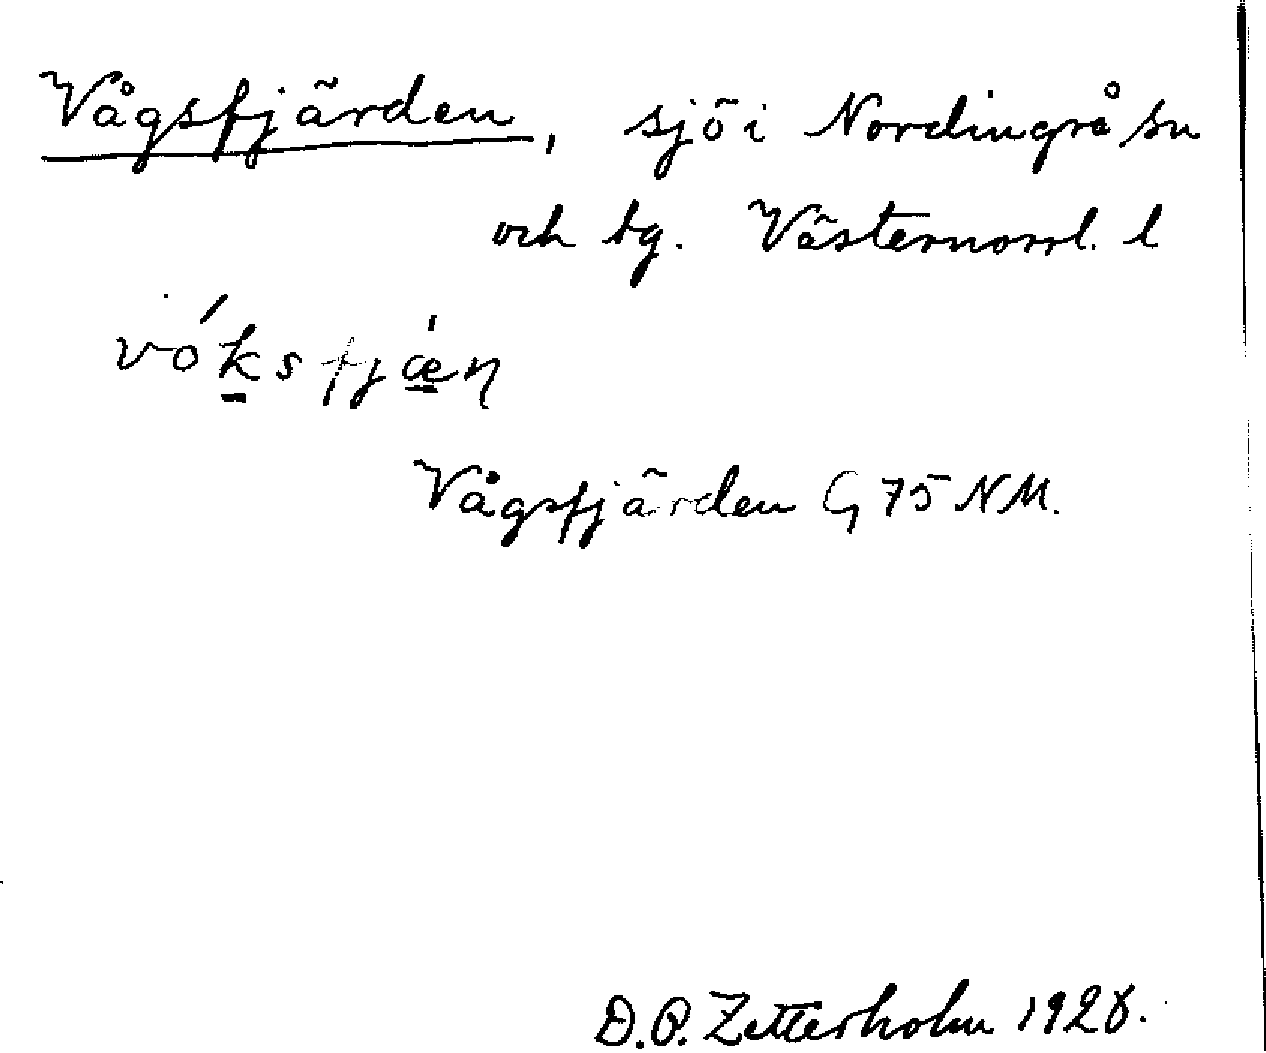 Vågsfjärden, sjö i Nordingrå sn
och tg. Västernorrl. l
vóksfjæ̲ṇ
Vågsfjärden G 75 NM.
D.O. Zetterholm 1928.